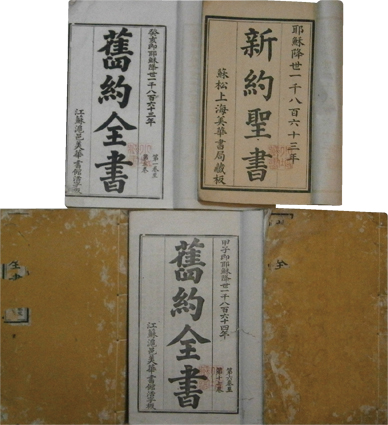 癸亥即耶穌降世一千八百六十三年
舊約全書
第一卷至
江蘇滬邑美華書館活字板
耶穌降世一千八百六十三年
新約聖書
蘇松上海美華書局藏板
甲子即耶穌降世一千八百六十四年
舊約全書
第六卷至
第十七卷
江蘇滬邑美華書館活字板